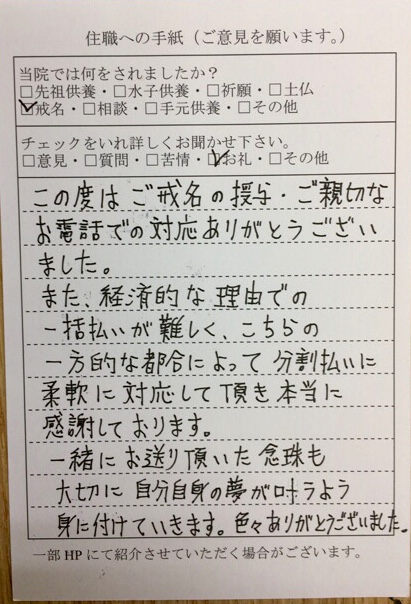 住職への手紙（ご意見を願います。）
当院では何をされましたか？
□先祖供養・□水子供養・□祈願・□土仏
☑戒名・□相談・□手元供養・□その他
チェックをいれ詳しくお聞かせ下さい。
□意見・□質問・□苦情・☑お礼・□その他
この度はご戒名の授与・ご親切な
お電話での対応ありがとうござい
ました。
また、経済的な理由での
一括払いが難しく、こちらの
一方的な都合によって分割払いに
柔軟に対応して頂き本当に
感謝しております。
一緒にお送り頂いた念珠も
大切に自分自身の夢が叶うよう
身に付けていきます。色々ありがとうございました。
一部HPにて紹介させていただく場合がございます。